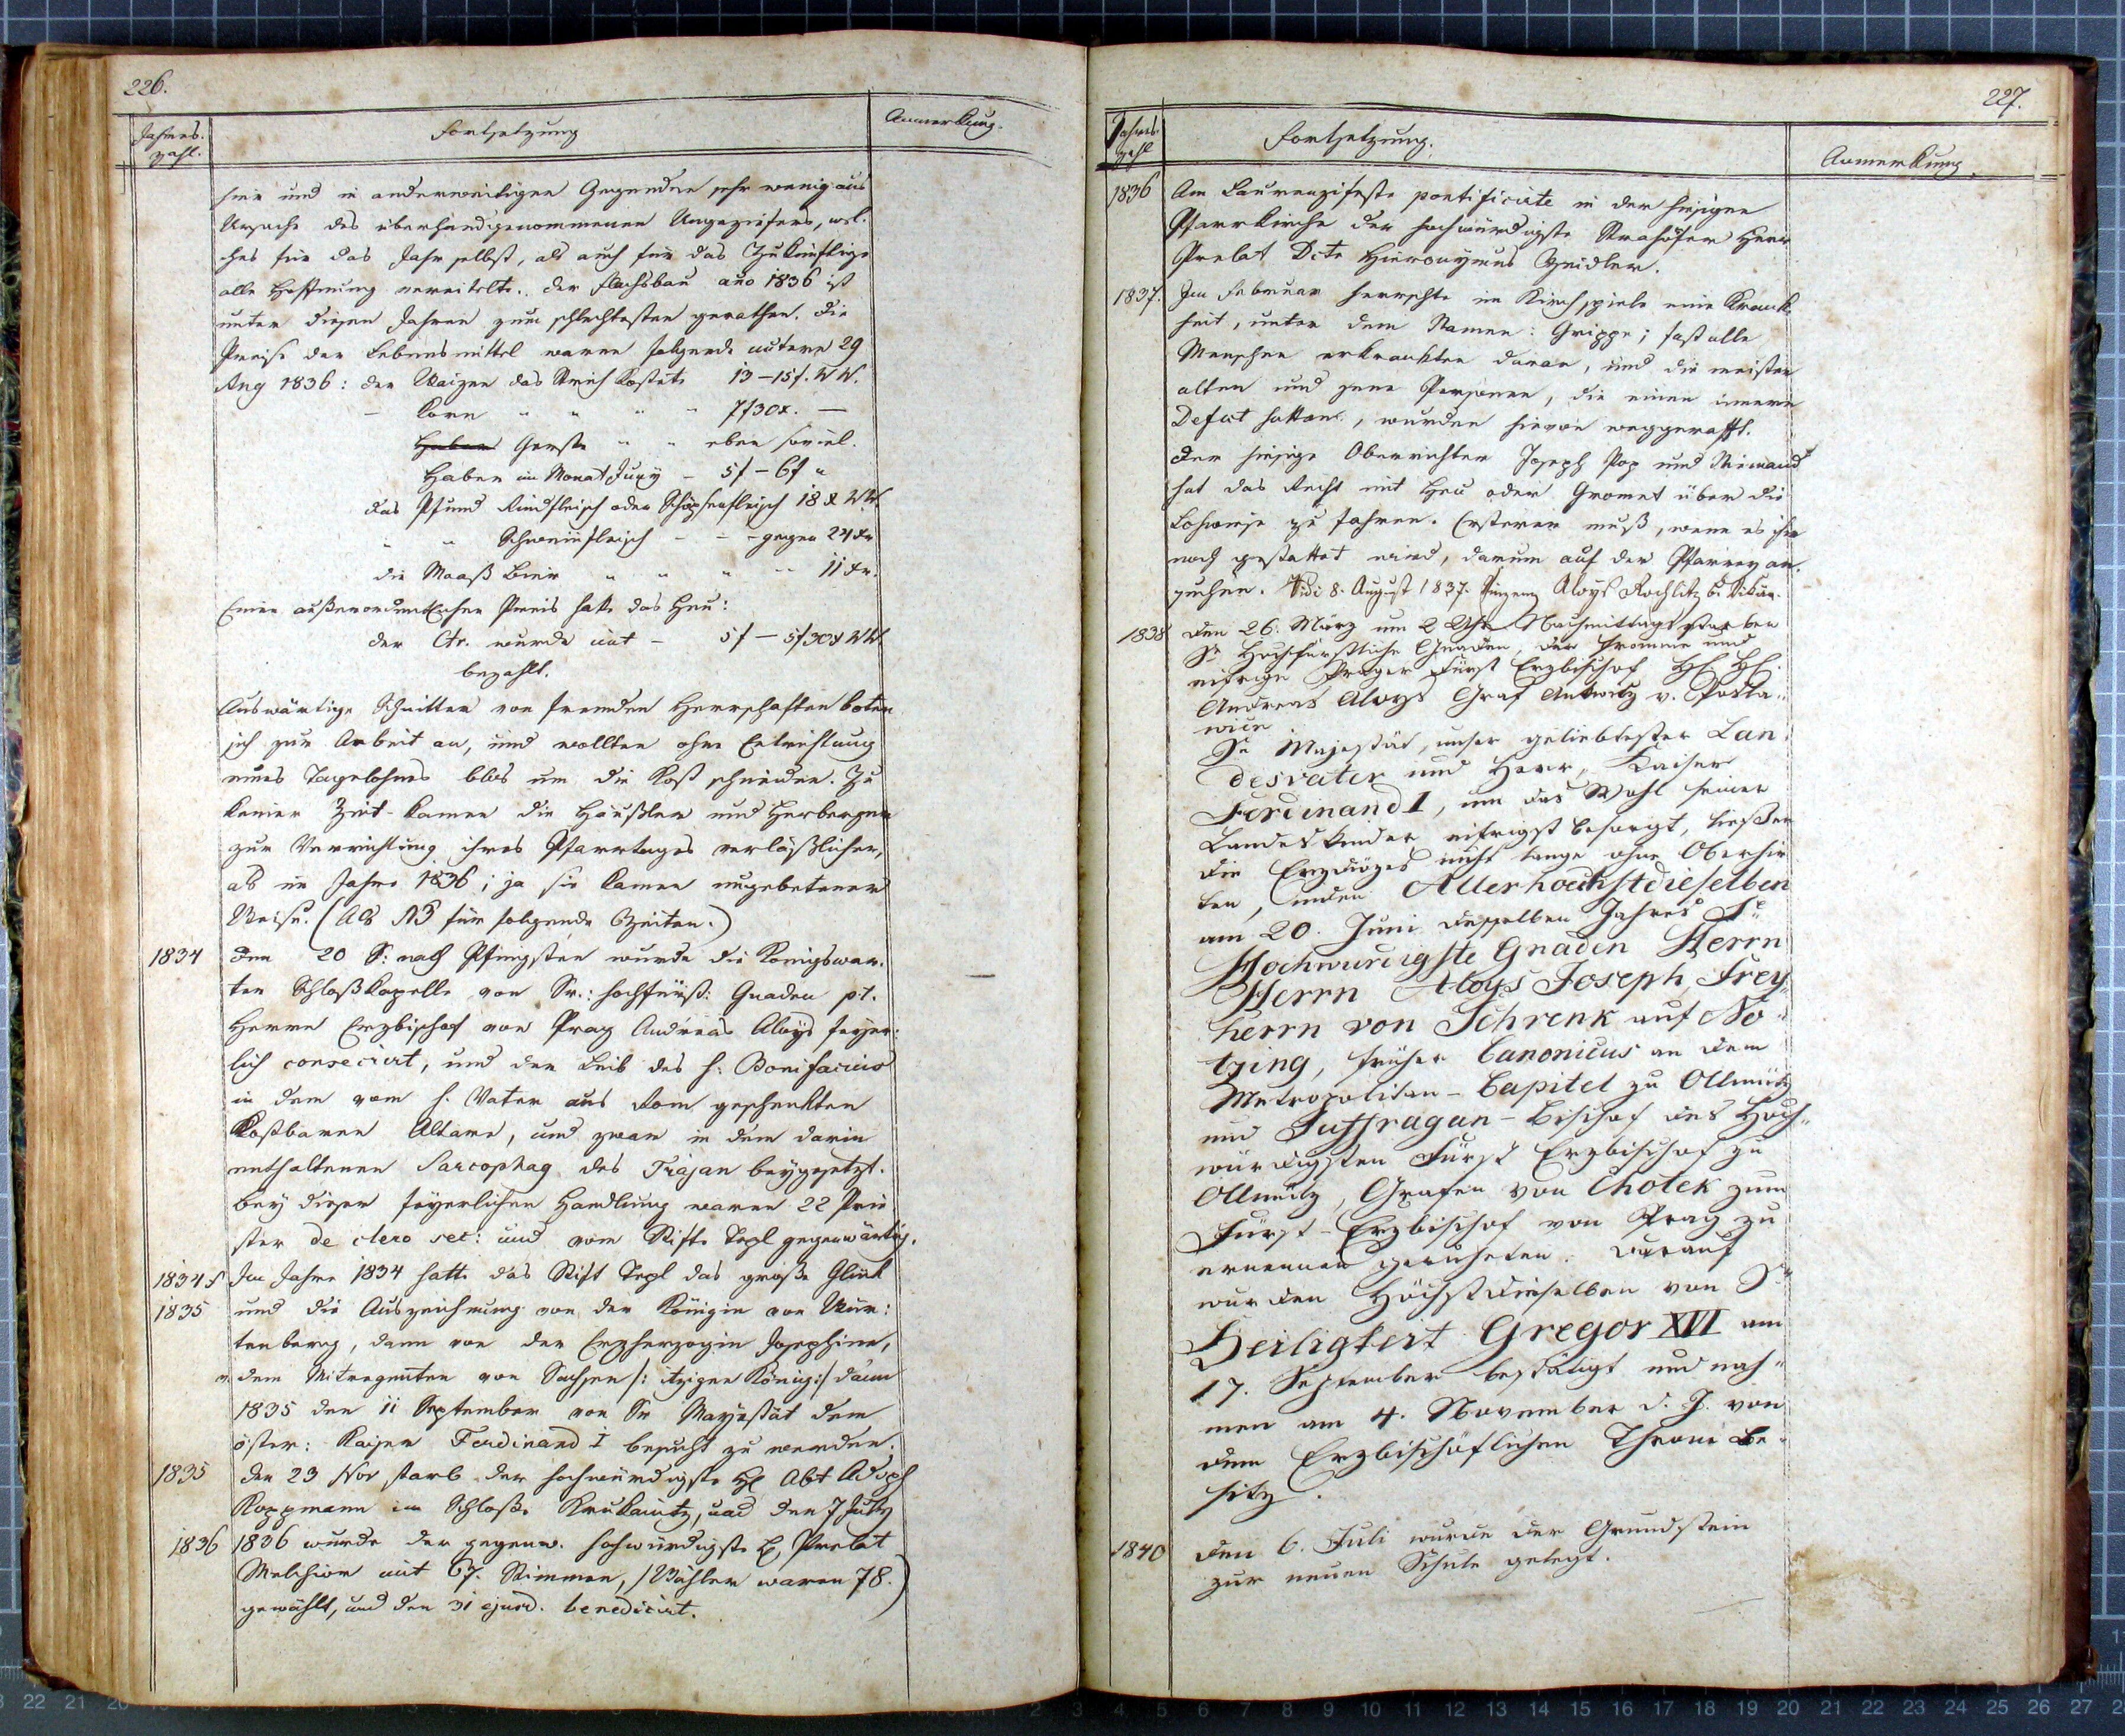 226.
Jahres-
zahl.
Fortsetzung
Anmerkung.
hier und in anderweitigen Gegenden sehr wenig aus
Ursache des überhandgenommenen Ungeziefers, wel-
ches für das Jahr selbst, als auch für das Zukünftige
alle Hoffnung vereitelte. Der Flachsbau año 1836 ist
unter diesen Jahren zum schlechtesten gerathen. Die
Preise der Lebensmittel waren folgende unterm 29
Aug 1836: der Waizen das Strich kostete 13–15f. WW.
– Korn " " " " 7f30x. —
Haber Gerste " " eben soviel.
Haber im Monat Juny – 5f – 6f "
das Pfund Rindfleisch oder Schöpsenfleisch 18 x WW.
" " Schweinfleisch – – gegen 24 xr
die Maaß Bier " " " " 11 xr.
Einen außerordentlichen Preis hatte das Heu:
der Ctr. wurde mit – 5f – 5f30x WW
bezahlt.
Auswärtige Schnitter von fremden Herrschaften boten
sich zur Arbeit an, und wollten ohne Entrichtung
eines Tagelohnes blos um die Kost schneiden. Zu
keiner Zeit kamen die Häußler und Herberger
zur Verrichtung ihres Pfarrtages verläßlicher,
als im Jahre 1836; ja sie kamen ungebetener
Weise. (Als NB für folgende Zeiten.)
1834 Den 20 S: nach Pfingsten wurde die Königswar-
ter Schloßkapelle von Sr.: hochfürst: Gnaden pt.
Herrn Erzbischof von Prag Andreas Aloys feyer-
lich consecrirt, und der Leib des h: Bonifacius
in dem vom h. Vater aus Rom geschenkten
kostbaren Altare, und zwar in dem darin
enthaltenen Sarcophag des Trajan beygesetzt.
bey dieser feyerlichen Handlung waren 22 Prie
ster de clero sec: und vom Stifte Tepl gegenwärtig.
1834 f Im Jahre 1834 hatte das Stift Tepl das große Glück
1835 und die Auszeichnung von der Königin von Wür-
tenberg, dann von der Erzherzogin Josephine,
v. dem Mitregenten von Sachsen /: itzigen König:/ dann
1835 den 11 September von Sr Mayestät dem
öster: Kaiser Ferdinand I besucht zu werden.
1835 den 23 Nov starb der hochwürdigste H. Abt Adolph
Koppmann im Schloße Krukanitz, und den 7 July
1836 1836 wurde der gegenw. hochwürdigste H. Prelat
Melchior mit 67. Stimmen, (Wähler waren 78.)
gewählt, und den 31 ejusd. benedicirt.
227.
Jahres-
zahl
Fortsetzung.
Anmerkung.
1836 Am Laurenzifeste pontificirte in der hiesigen
Pfarrkirche der hochwürdigste Strahöfer Herr
Prelat Dcte Hieronymus Zeidler.
1837. Im Februar herrschte im Kirchspiele eine Krank-
heit, unter dem Namen: Grippe; fast alle
Menschen erkrankten daran, und die meisten
alten und jene Personen, die einen innern
Defect hatten, wurden hievon weggerafft.
Der hiesige Oberrichter Joseph Pop und Niemand
hat das Recht mit Heu oder Gromet über die
Lohwiese zu fahren. Ersterer muß, wenn es ihm
noch gestattet wird, darum auf der Pfarrey an-
suchen. Vidi 8. August 1837. Vinzenz Aloys Rochlitz b. Vikär.
1838 Den 26. März um 2 Uhr Nachmittags starben
Sr Hochfürstliche Gnaden, der fromme und
eifrige Prager Fürst Erzbischof H. H.
Andreas Aloys Graf Ankwitz v. Posla-
wice
Se Majestät, unser geliebtester Lan-
desvater und Herr, Kaiser
Ferdinand I, um das Wohl seiner
Landeskinder eifrigst besorgt, ließen
die Erzdiözes nicht lange ohne Oberhir
ten, indem Allerhöchstdieselben
am 20. Juni desselben Jahres Sr
Hochwürdigste Gnaden Herrn
Herrn Aloys Joseph, Frey-
herrn von Schrenk auf No-
tzing, früher Canonicus an dem
Metropolitan-Capitel zu Ollmütz
und Suffragan-Bischof des Hoch-
würdigsten Fürst Erzbischof zu
Ollmütz, Grafen von Chotek zum
Fürst-Erzbischof von Prag zu
ernennen geruheten. Darauf
wurden Höchstdieselben von Sr
Heiligkeit Gregor XVI am
17. September bestätigt und nah-
men am 4. November d. J. von
dem Erzbischöflichen Throne Be-
sitz.
1840 Den 6. Juli wurde der Grundstein
zur neuen Schule gelegt.